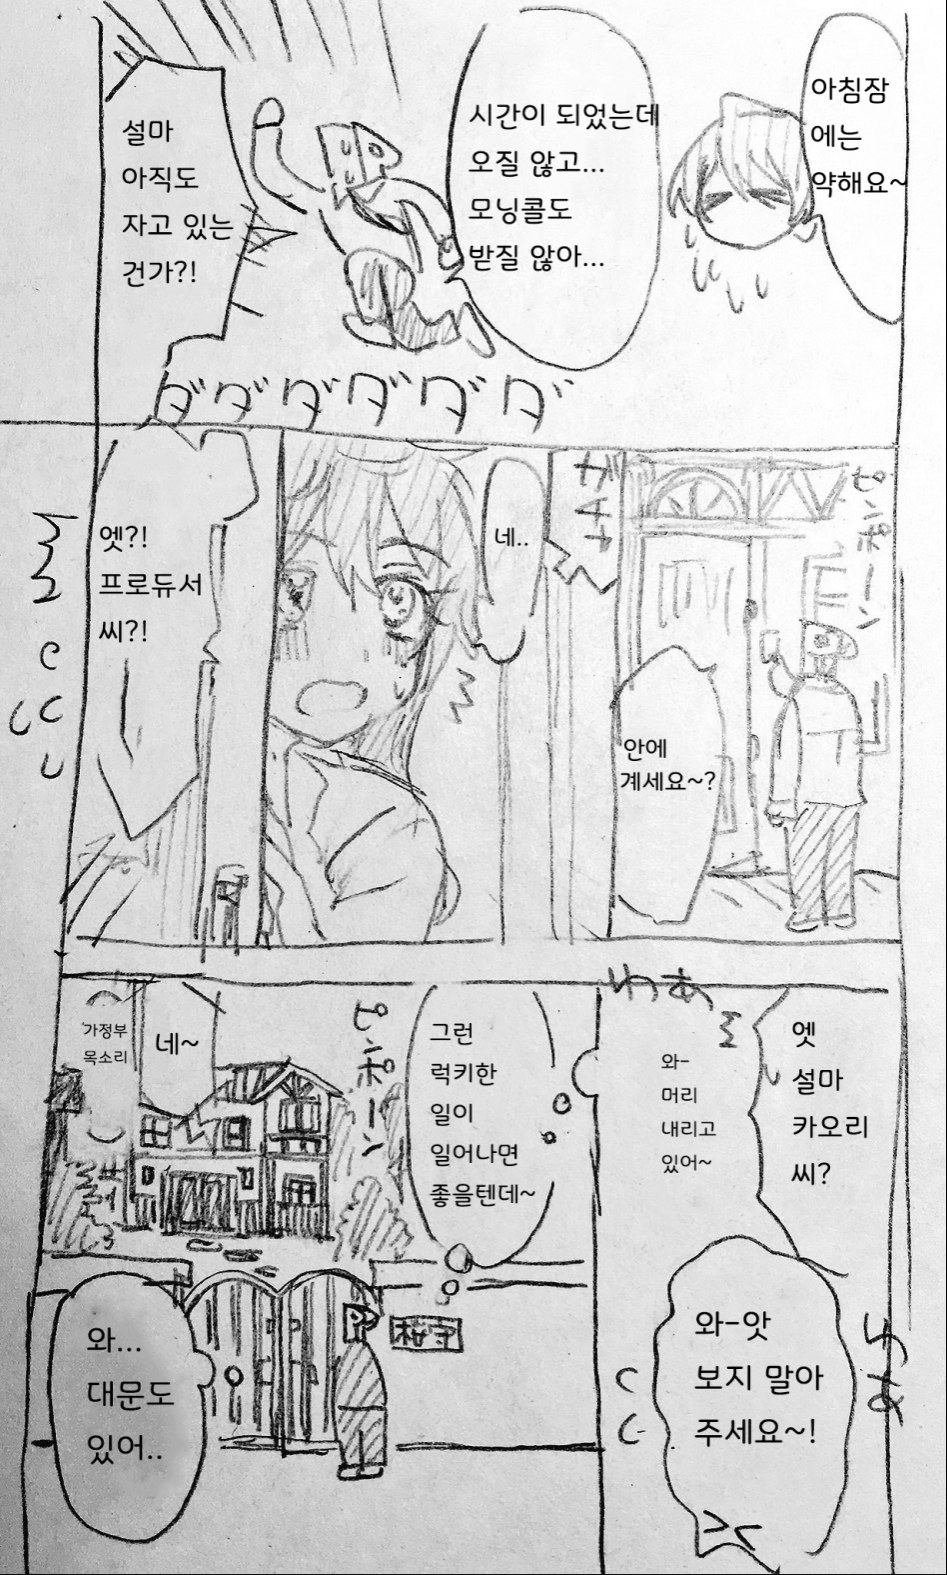 아침잠
에는
약해요~
시간이 되었는데
오질 않고...
모닝콜도
받질 않아...
설마
아직도
자고 있는
건가?!
ダダダダダダ
ピンポーン
안에
계세요~?
ガチャ
네..
엣?!
프로듀서
씨?!
엣
설마
카오리
씨?
わぁ
와-
머리
내리고
있어~
와-앗
보지 말아
주세요~!
그런
럭키한
일이
일어나면
좋을텐데~
ピンポーン
네~
가정부
목소리
桜守
와...
대문도
있어..